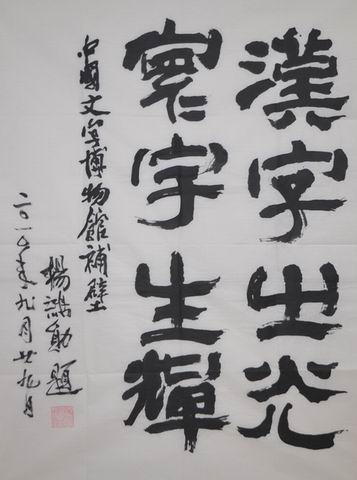 漢字之光
寰宇生輝
中國文字博物館補壁
楊鴻勛題
二〇一五年九月廿九日